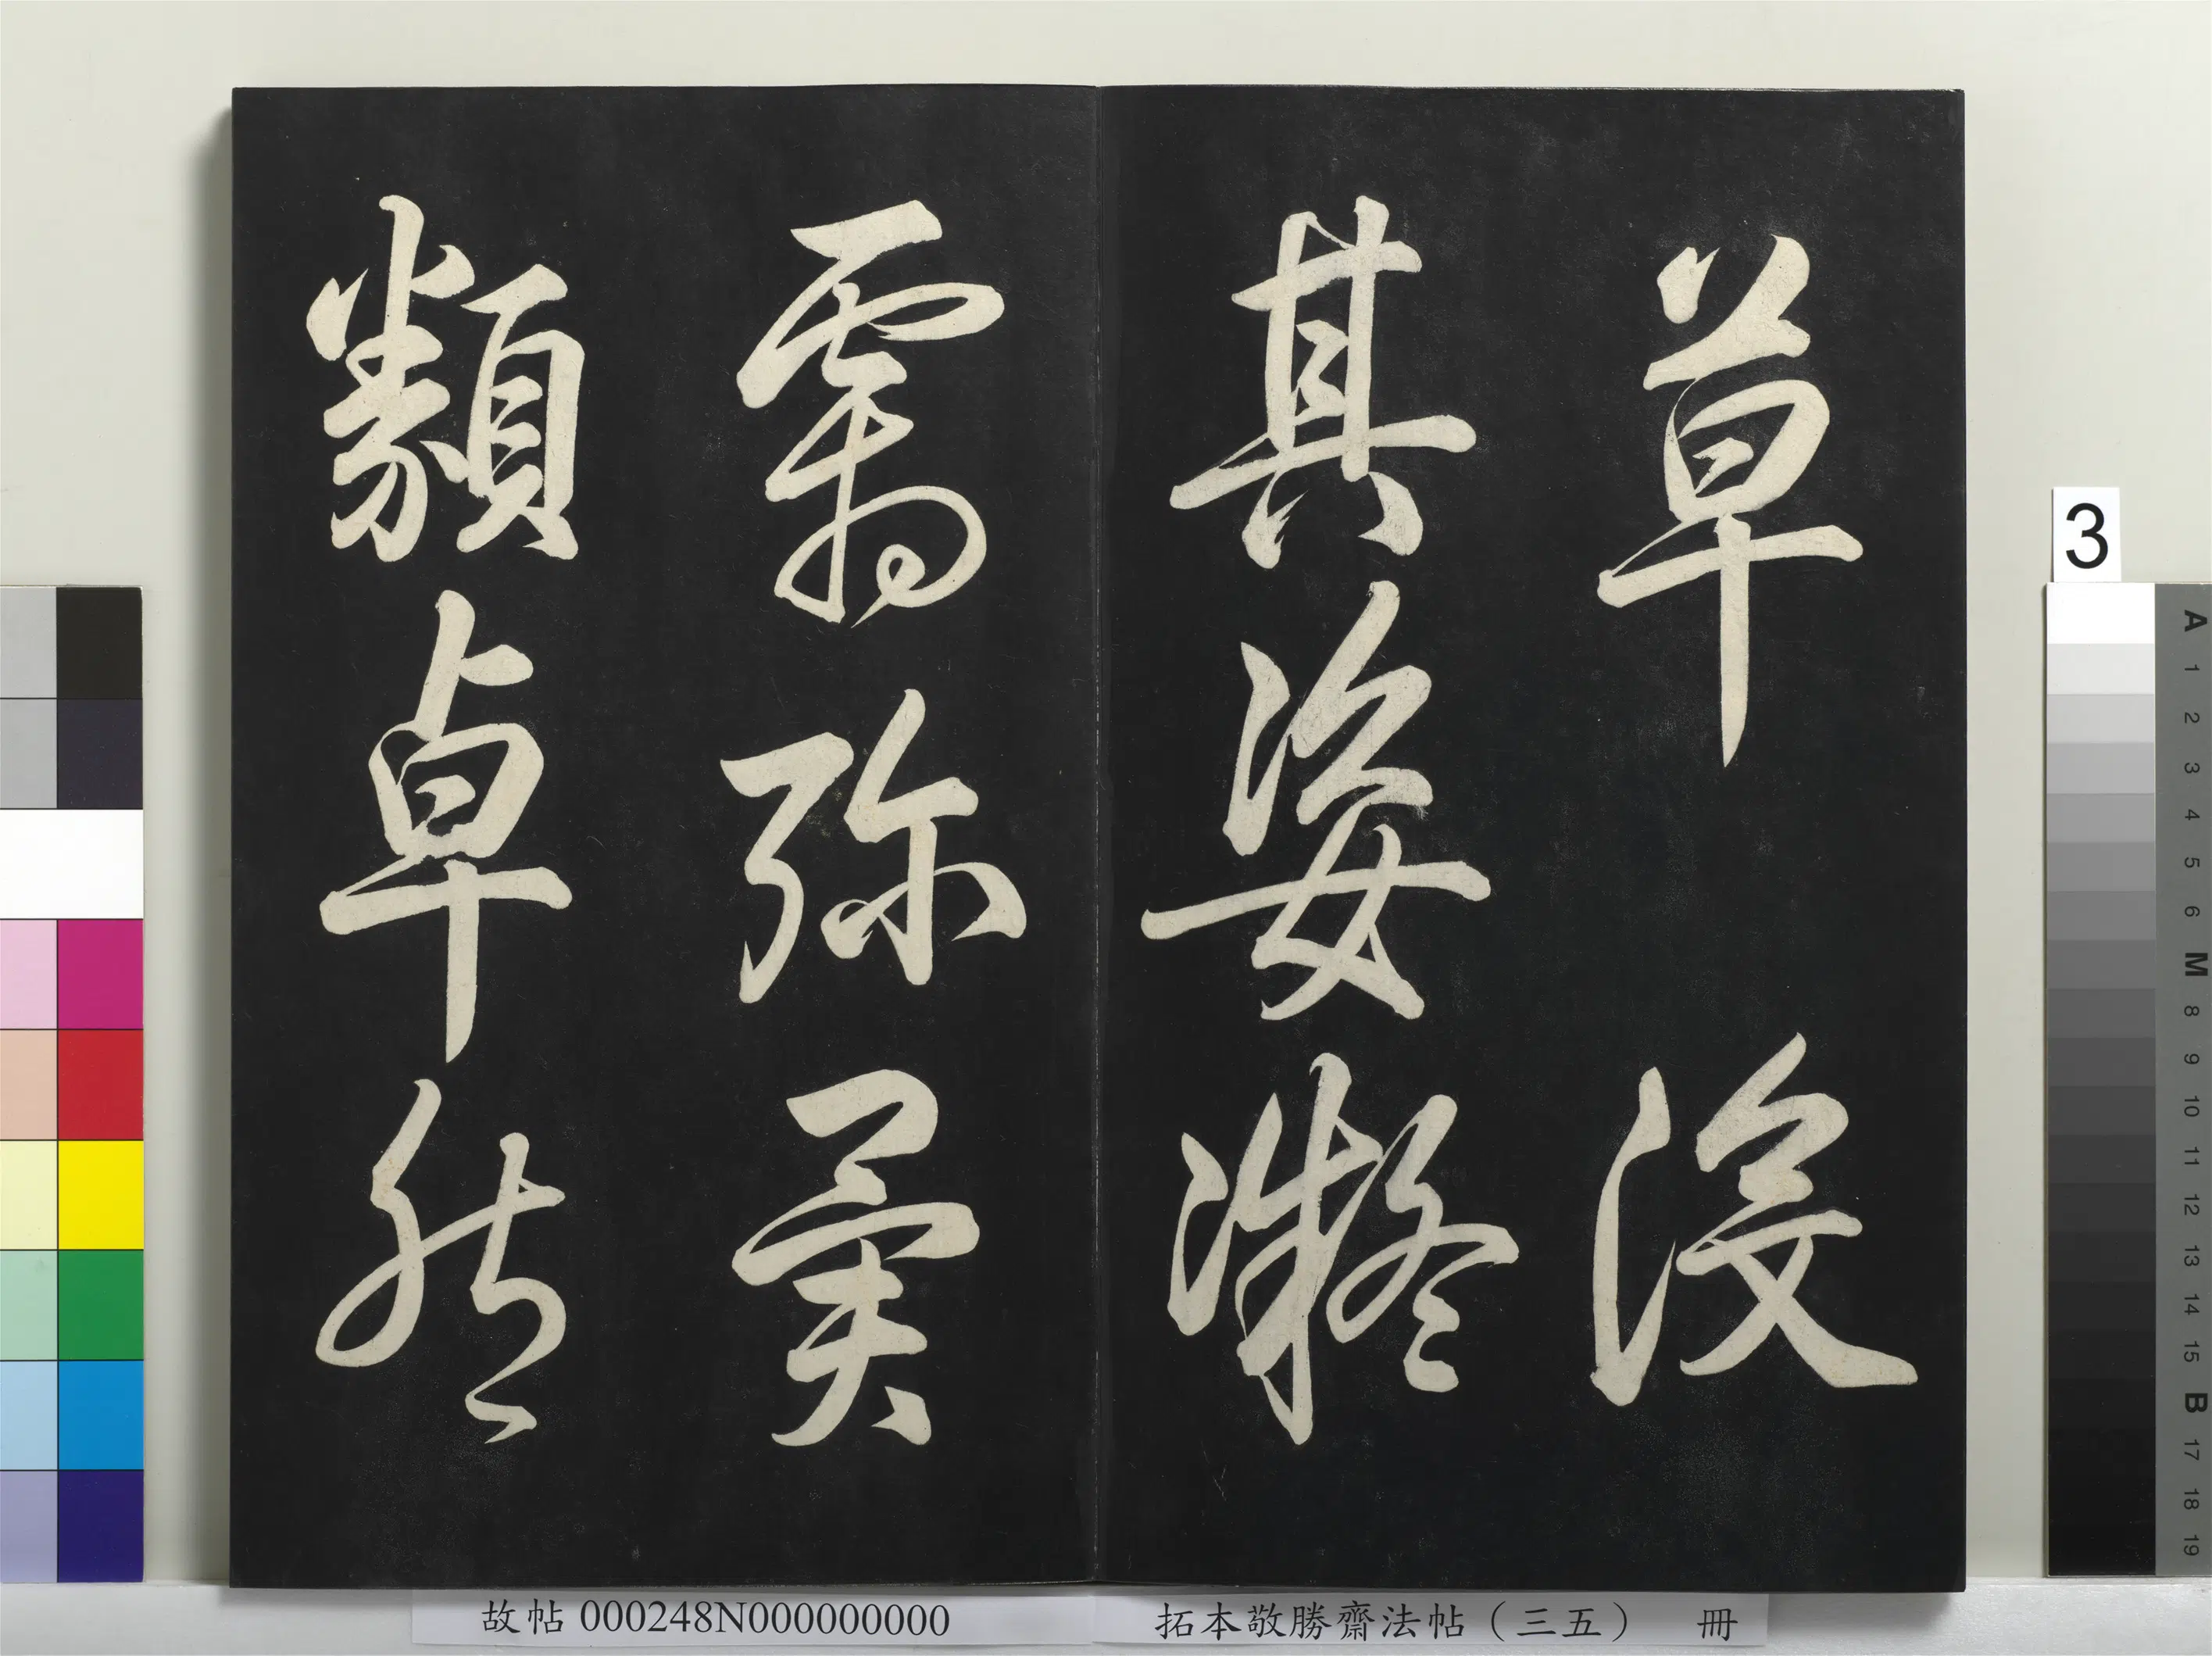 草沒
其姿凝
霜殄異
類卓然
3
A 1 2 3 4 5 6 M 8 9 10 11 12 13 14 15 B 17 18 19
故帖 000248N000000000
拓本敬勝齋法帖（三五） 冊